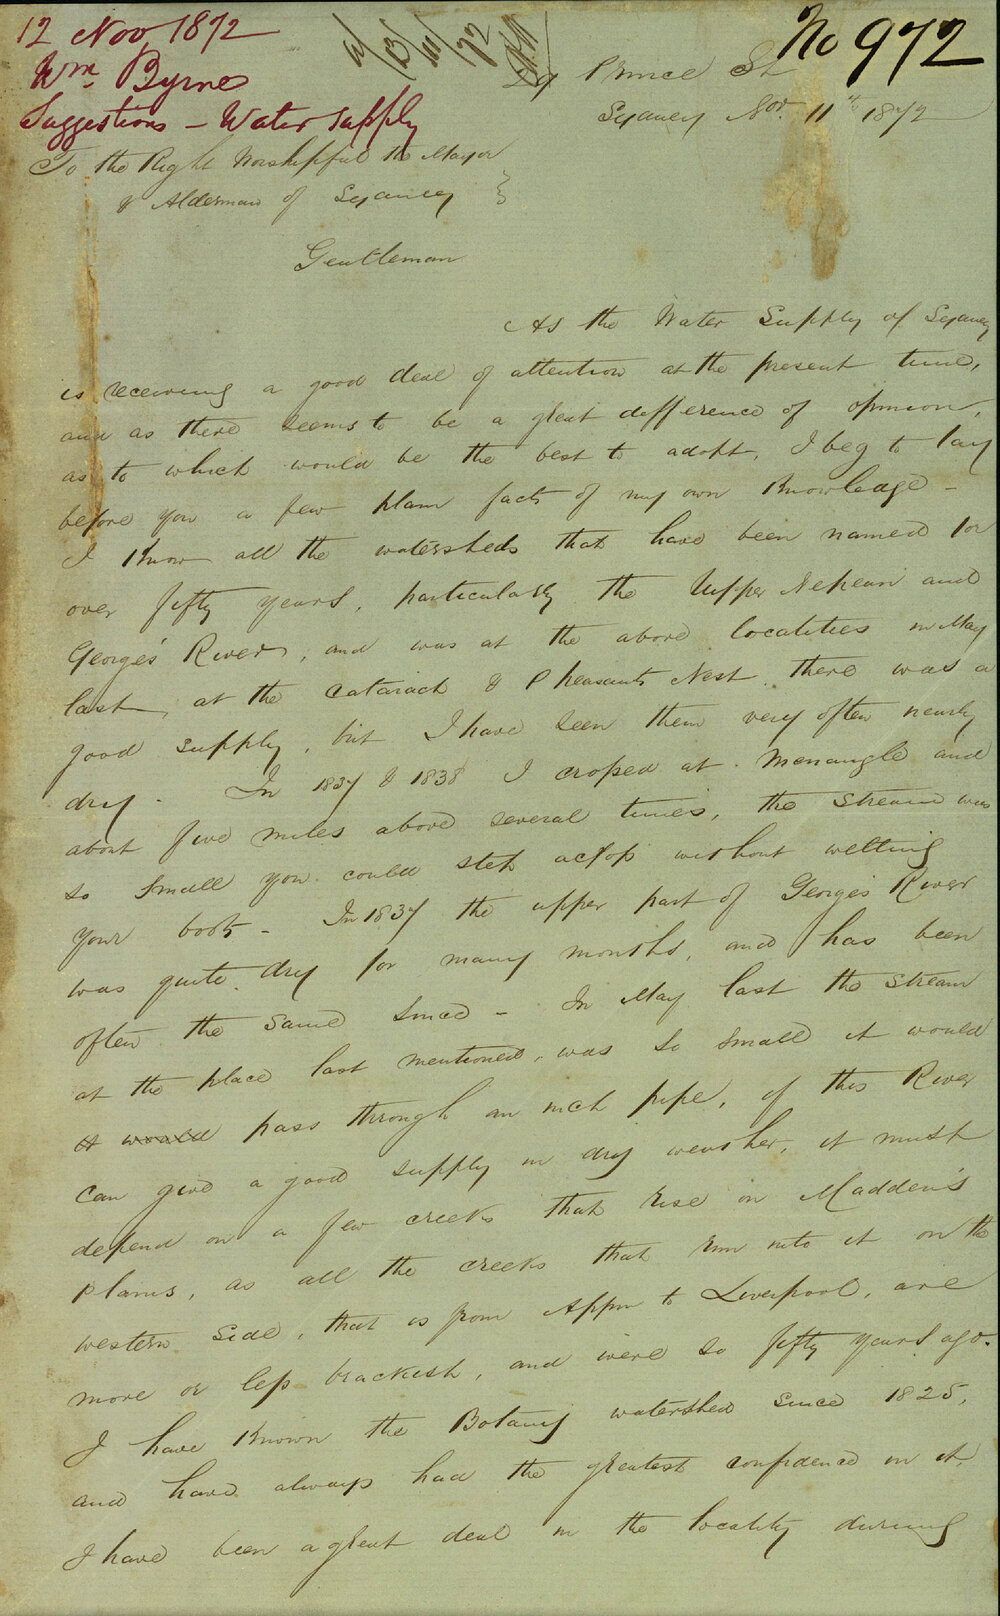 12 Nov 1872
Wm Byrne
Suggestions – Water supply
13/11/72
No 972
Prince St
Sydney Nov. 11th 1872
To the Right Worshipful the Mayor
& Alderman of Sydney }
Gentleman
As the Water Supply of Sydney
is receiving a good deal of attention at the present time,
and as there seems to be a great defference of opinion,
as to which would be the best to adopt, I beg to lay
before you a few plain facts of my own Knowledge –
I Know all the watersheds that have been named for
over fifty years, particularly the Upper Nepean and
George's River, and was at the above localities in May
last, at the Cataract & Pheasants Nest, there was a
good supply, but I have seen them very often nearly
dry. In 1837 & 1838 I crossed at Menangle and
about five miles above several times, the stream was
so small you could step across without wetting
your boots – In 1837 the upper part of George's River
was quite dry for many months, and has been
often the same since – In May last the stream
at the place last mentioned, was so small it would
it would pass through an inch pipe, if this River
can give a good supply in dry weather, it must
depend on a few creeks that rise in Madden's
plains, as all the creeks that run into it on the
western side, that is from Appin to Liverpool, are
more or less brackish, and were so fifty years ago.
I have Known the Botany watershed since 1825,
and have always had the greatest confidence in it,
I have been a great deal in the locality during